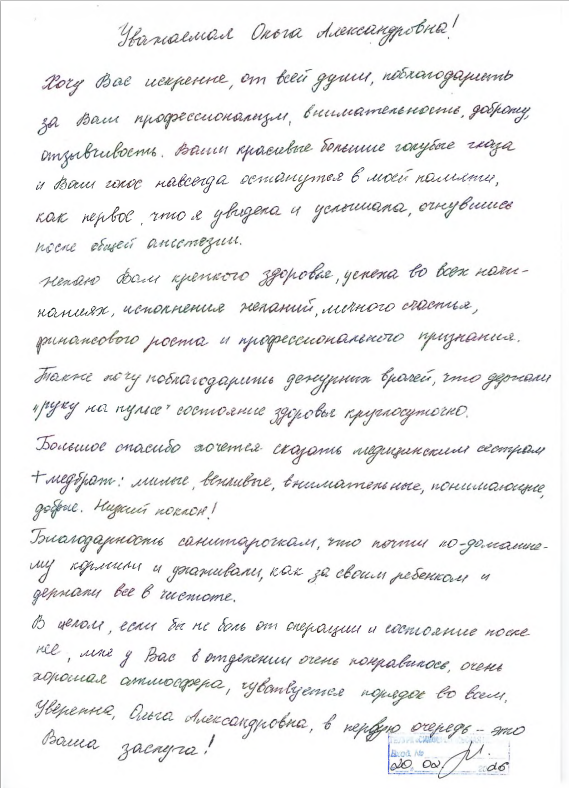 Уважаемая Ольга Александровна!
Хочу Вас искренне, от всей души, поблагодарить
за Ваш профессионализм, внимательность, доброту,
отзывчивость. Ваши красивые большие голубые глаза
и Ваш голос навсегда останутся в моей памяти,
как первое, что я увидела и услышала, очнувшись
после общей анестезии.
Желаю Вам крепкого здоровья, успеха во всех начи-
наниях, исполнения желаний, личного счастья,
финансового роста и профессионального признания.
Также хочу поблагодарить дежурных врачей, что держали
"руку на пульсе" состояние здоровья круглосуточно.
Большое спасибо хочется сказать медицинским сестрам
+ медбрат: милые, вежливые, внимательные, понимающие,
добрые. Низкий поклон!
Благодарность санитарочкам, что почти по-домашне-
му кормили и ухаживали, как за своим ребенком и
держали все в чистоте.
В целом, если бы не боль от операции и состояние после
неё, мне у Вас в отделении очень понравилось, очень
хорошая атмосфера, чувствуется порядок во всем.
Уверенна, Ольга Александровна, в первую очередь - это
Ваша заслуга!
Вход №
20. 02